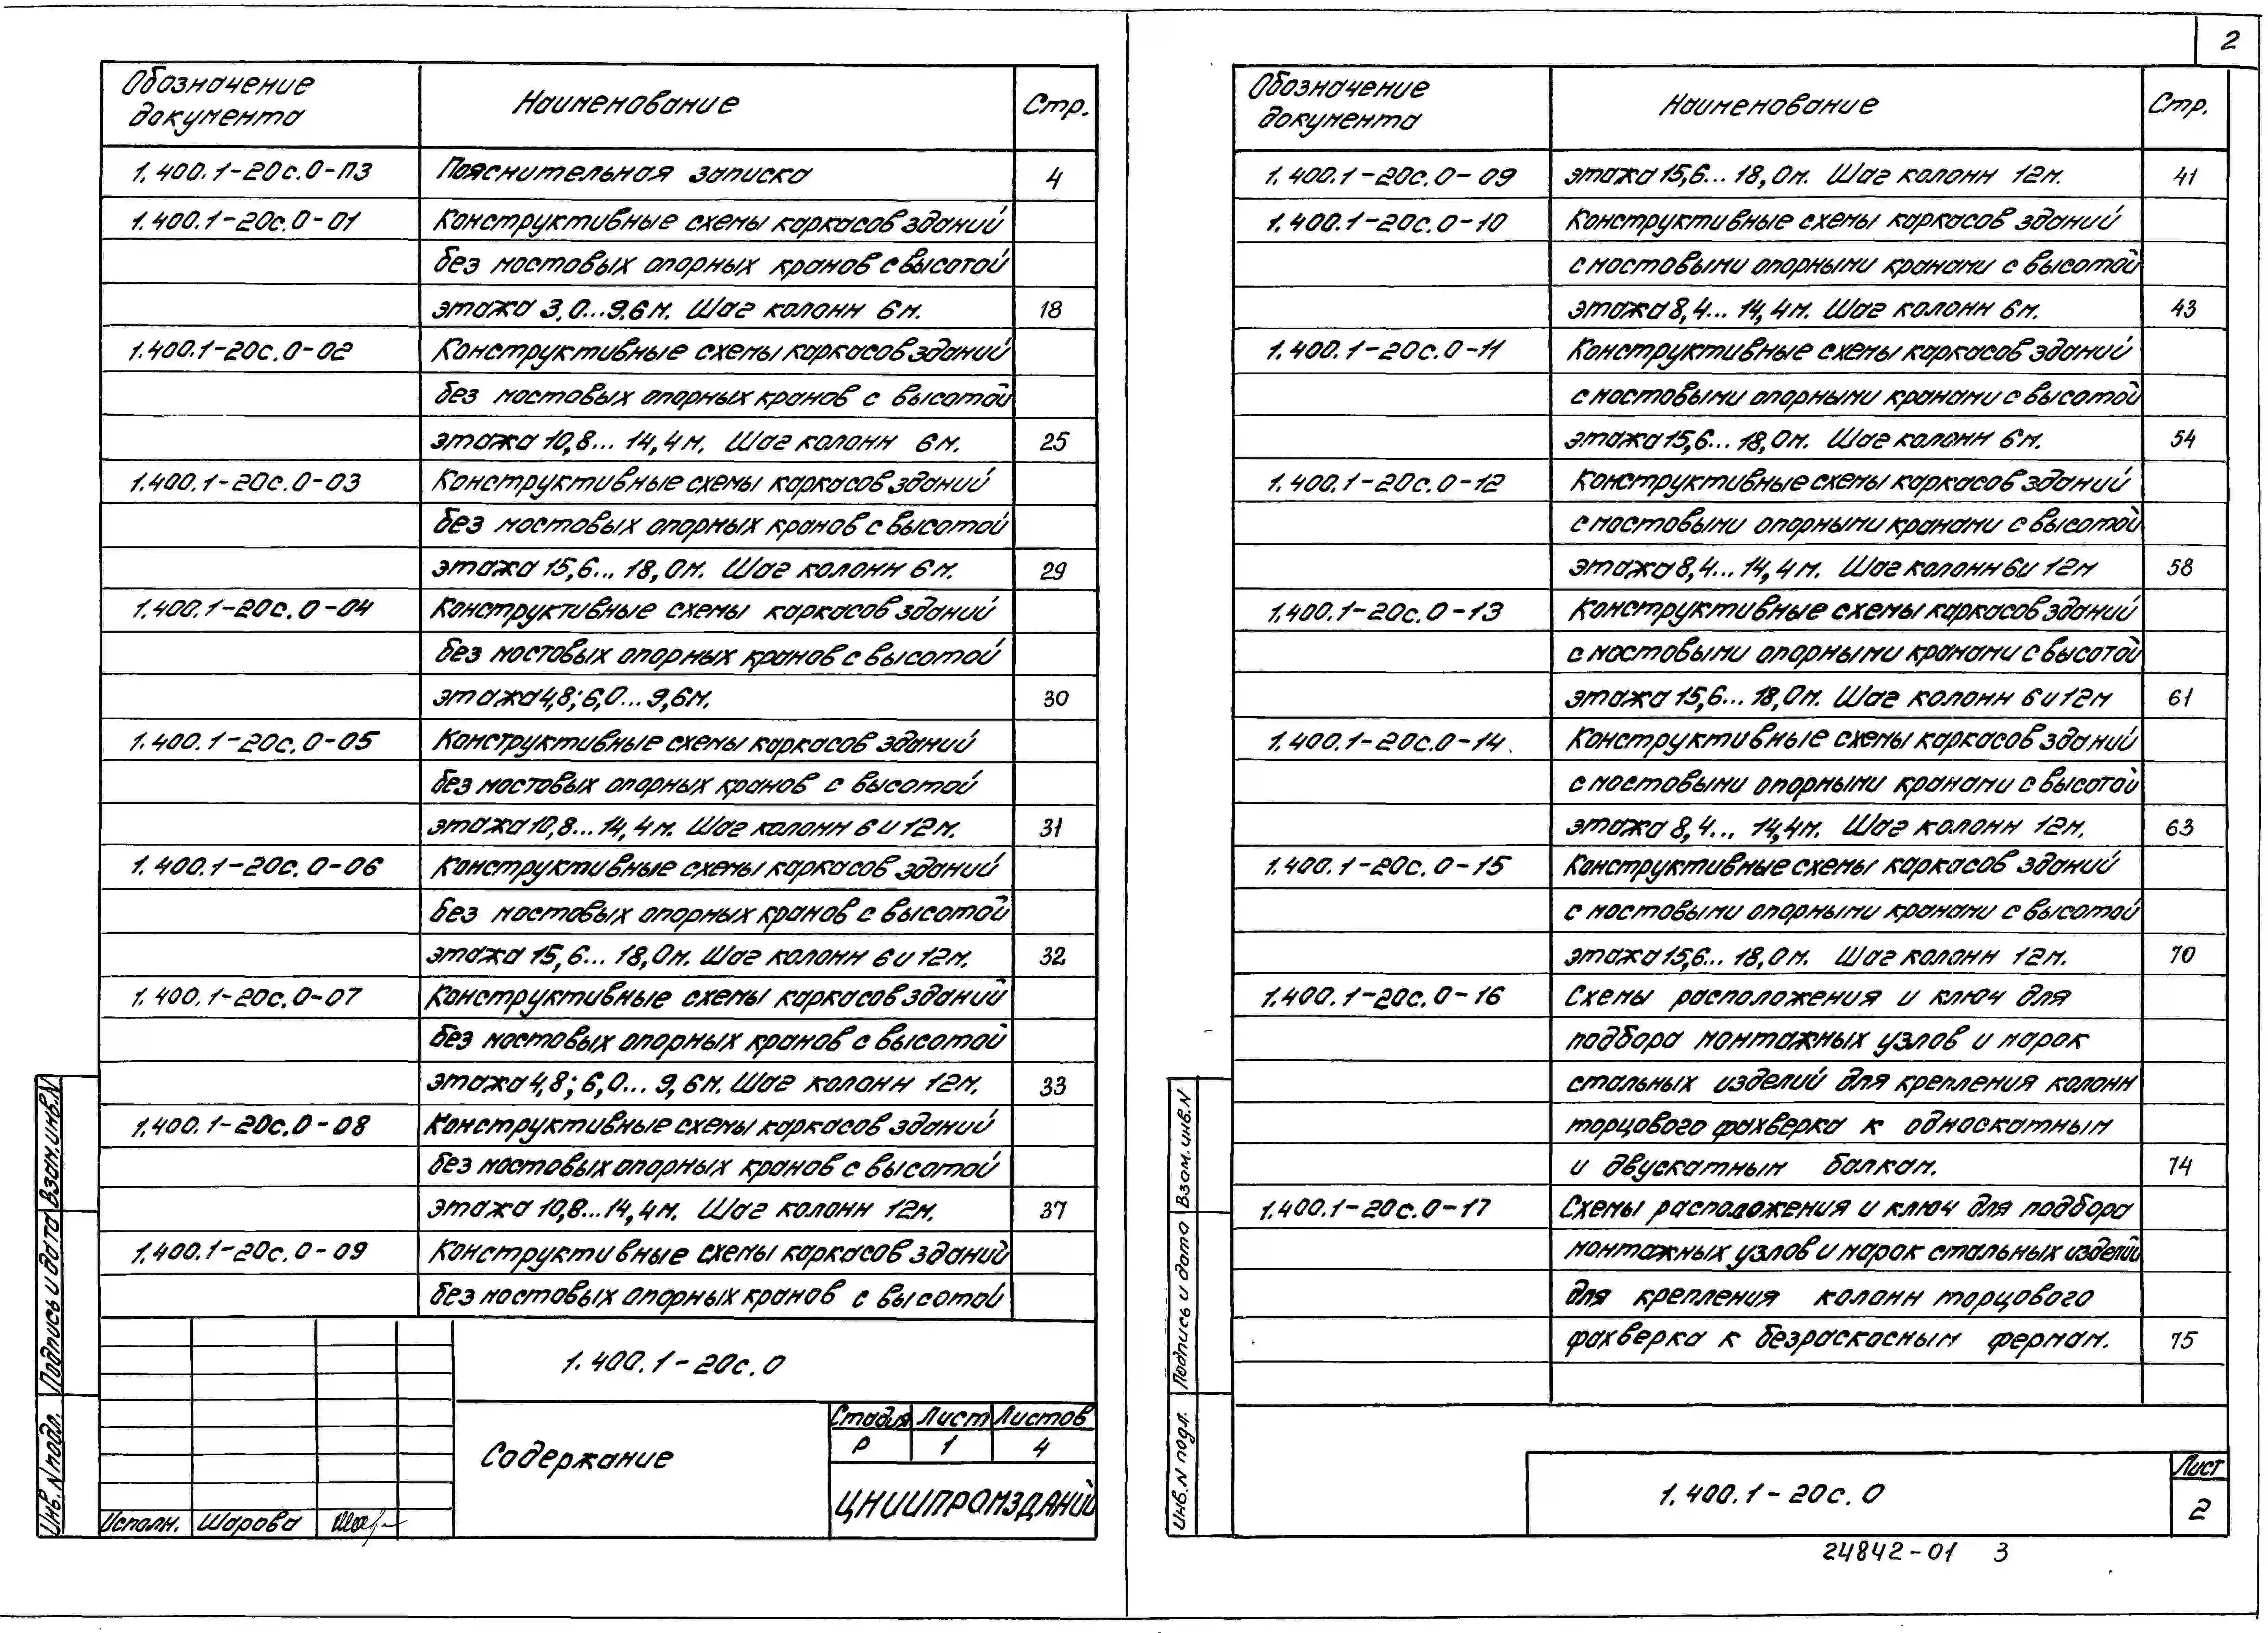 2
Обозначение документа Наименование Стр.
1.400.1-20с.0-ПЗ Пояснительная записка 4
1.400.1-20с.0-01 Конструктивные схемы каркасов зданий
без мостовых опорных кранов с высотой
этажа 3,0...9,6м. Шаг колонн 6м. 18
1.400.1-20с.0-02 Конструктивные схемы каркасов зданий
без мостовых опорных кранов с высотой
этажа 10,8... 14,4м. Шаг колонн 6м. 25
1.400.1-20с.0-03 Конструктивные схемы каркасов зданий
без мостовых опорных кранов с высотой
этажа 15,6... 18,0м. Шаг колонн 6м. 29
1.400.1-20с.0-04 Конструктивные схемы каркасов зданий
без мостовых опорных кранов с высотой
этажа 4,8; 6,0... 9,6м. 30
1.400.1-20с.0-05 Конструктивные схемы каркасов зданий
без мостовых опорных кранов с высотой
этажа 10,8... 14,4м. Шаг колонн 6 и 12м. 31
1.400.1-20с.0-06 Конструктивные схемы каркасов зданий
без мостовых опорных кранов с высотой
этажа 15,6... 18,0м. Шаг колонн 6 и 12м. 32
1.400.1-20с.0-07 Конструктивные схемы каркасов зданий
без мостовых опорных кранов с высотой
этажа 4,8; 6,0... 9,6м. Шаг колонн 12м. 33
1.400.1-20с.0-08 Конструктивные схемы каркасов зданий
без мостовых опорных кранов с высотой
этажа 10,8... 14,4м. Шаг колонн 12м. 37
1.400.1-20с.0-09 Конструктивные схемы каркасов зданий
без мостовых опорных кранов с высотой
1.400.1-20с.0
Содержание
Стадия Лист Листов
Р 1 4
ЦНИИПРОМЗДАНИЙ
Исполн. Шарова
Инв. N подл. Подпись и дата Взам. инв. N
Обозначение документа Наименование Стр.
1.400.1-20с.0-09 этажа 15,6... 18,0м. Шаг колонн 12м. 41
1.400.1-20с.0-10 Конструктивные схемы каркасов зданий
с мостовыми опорными кранами с высотой
этажа 8,4... 14,4м. Шаг колонн 6м. 43
1.400.1-20с.0-11 Конструктивные схемы каркасов зданий
с мостовыми опорными кранами с высотой
этажа 15,6... 18,0м. Шаг колонн 6м. 54
1.400.1-20с.0-12 Конструктивные схемы каркасов зданий
с мостовыми опорными кранами с высотой
этажа 8,4... 14,4м. Шаг колонн 6 и 12м 58
1.400.1-20с.0-13 Конструктивные схемы каркасов зданий
с мостовыми опорными кранами с высотой
этажа 15,6... 18,0м. Шаг колонн 6 и 12м 61
1.400.1-20с.0-14 Конструктивные схемы каркасов зданий
с мостовыми опорными кранами с высотой
этажа 8,4... 14,4м. Шаг колонн 12м. 63
1.400.1-20с.0-15 Конструктивные схемы каркасов зданий
с мостовыми опорными кранами с высотой
этажа 15,6... 18,0м. Шаг колонн 12м. 70
1.400.1-20с.0-16 Схемы расположения и ключ для
подбора монтажных узлов и марок
стальных изделий для крепления колонн
торцового фахверка к односкатным
и двускатным балкам. 74
1.400.1-20с.0-17 Схемы расположения и ключ для подбора
монтажных узлов и марок стальных изделий
для крепления колонн торцового
фахверка к безраскасным фермам. 75
1.400.1-20с.0
Лист
2
Инв. N подл. Подпись и дата Взам. инв. N
24842-01 3